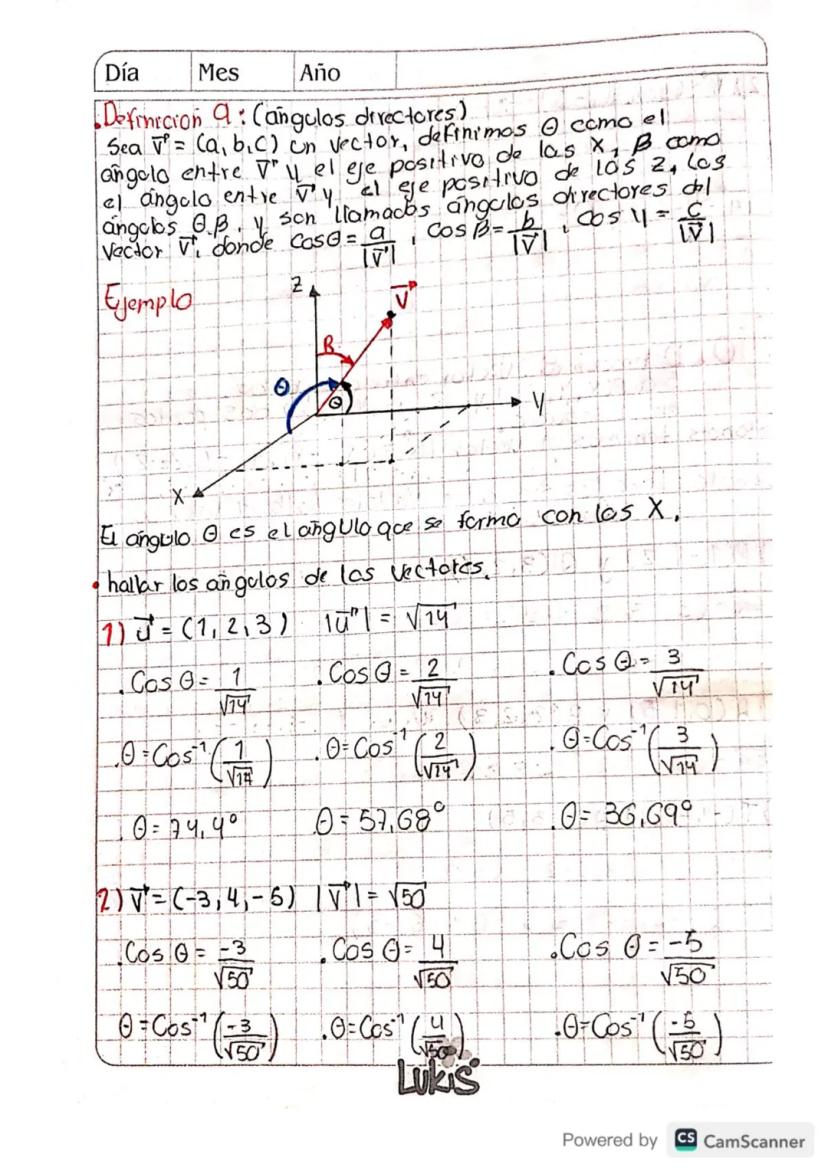 Día Mes Año
.Definición 9: (ángulos directores)
Sea V = (a,b,c) un vector, definimos θ como el
ángulo entre V y el eje positivo de las X, β como
el ángulo entre V y el eje positivo de los Z, los
ángulos θ,β, y son llamados ángulos directores del
vector V, donde Cosθ = a/|V| , Cos β = b/|V| , Cos y = c/|V|
Ejemplo
Z
V
β
θ
θ
Y
X
El ángulo θ es el ángulo que se forma con los X.
• hallar los ángulos de los vectores.
1) U = (1, 2, 3) |U| = √14
.Cos θ = 1/√14 .Cos θ = 2/√14 .Cos θ = 3/√14
.θ = Cos⁻¹(1/√14) .θ = Cos⁻¹(2/√14) .θ = Cos⁻¹(3/√14)
.θ = 74,4° .θ = 57,68° .θ = 36,69°
2) V = (-3, 4, -5) |V| = √50
.Cos θ = -3/√50 .Cos θ = 4/√50 .Cos θ = -5/√50
θ = Cos⁻¹(-3/√50) .θ = Cos⁻¹(4/√50) .θ = Cos⁻¹(-5/√50)
LUKIS
Powered by CS CamScanner